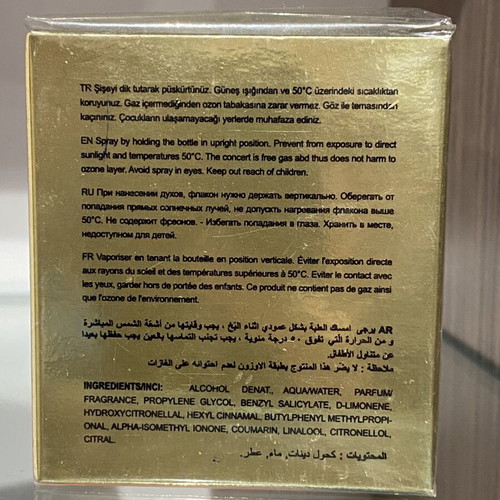 TR Şişeyi dik tutarak püskürtünüz. Güneş ışığından ve 50°C üzerindeki sıcaklıktan
koruyunuz. Gaz içermediğinden ozon tabakasına zarar vermez. Göz ile temasından
kaçınınız. Çocukların ulaşamayacağı yerlerde muhafaza ediniz.
EN Spray by holding the bottle in upright position. Prevent from exposure to direct
sunlight and temperatures 50°C. The concert is free gas abd thus does not harm to
ozone layer. Avoid spray in eyes. Keep out reach of children.
RU При нанесении духов, флакон нужно держать вертикально. Оберегать от
попадания прямых солнечных лучей, не допускать нагревания флакона выше
50°C. Не содержит фреонов. - Избегать попадания в глаза. Хранить в месте,
недоступном для детей.
FR Vaporiser en tenant la bouteille en position verticale. Éviter l'exposition directe
aux rayons du soleil et des températures supérieures à 50°C. Eviter le contact avec
les yeux, garder hors de portée des enfants. Ce produit ne contient pas de gaz ainsi
que l'ozone de l'environnement.
AR يرجى امساك العلبة بشكل عمودي اثناء البخ ، يجب وقايتها من أشعة الشمس المباشرة
و من الحرارة التي تفوق ٥٠ درجة منوية ، يجب تجنب التماسها بالعين يجب حفظها بعيدا
عن متناول الأطفال.
ملاحظة : لا يضر هذا المنتوج بطبقة الاوزون لعدم احتوائه على الغازات
INGREDIENTS/INCI: ALCOHOL DENAT., AQUA/WATER, PARFUM/
FRAGRANCE, PROPYLENE GLYCOL, BENZYL SALICYLATE, D-LIMONENE,
HYDROXYCITRONELLAL, HEXYL CINNAMAL, BUTYLPHENYL METHYLPROPI-
ONAL, ALPHA-ISOMETHYL IONONE, COUMARIN, LINALOOL, CITRONELLOL,
CITRAL.
المحتويات : كحول دينات, ماء, عطر.